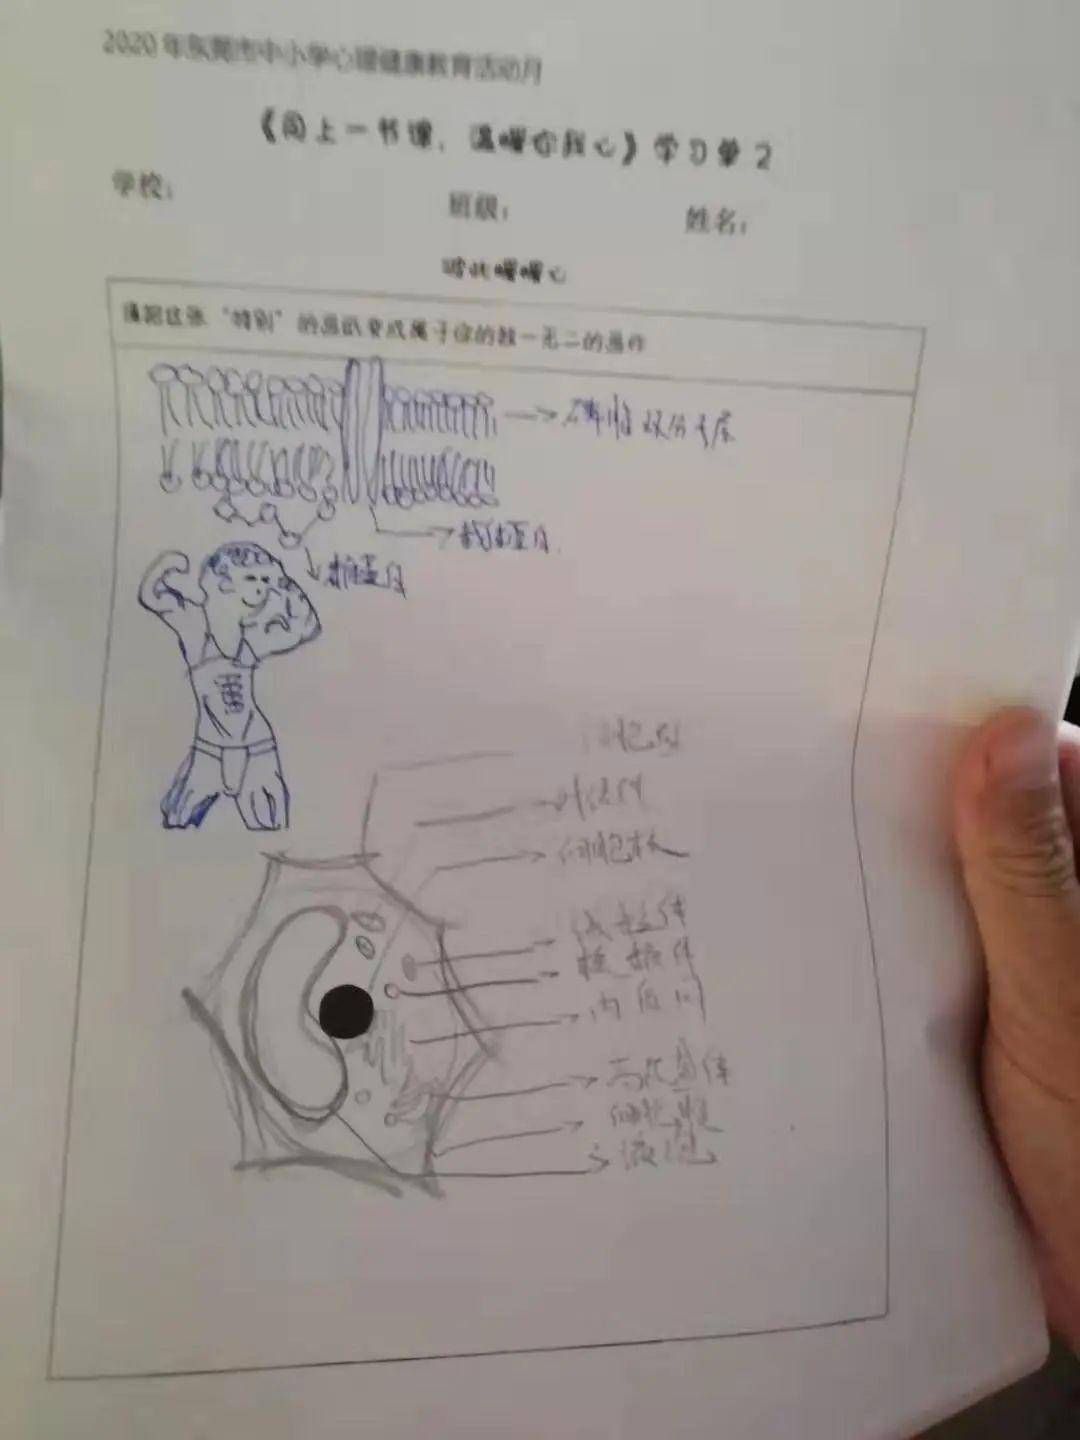 2020年东莞市中小学心理健康教育活动月
《同上一节课，温暖你我心》学习单2
学校：
班级：
姓名：
彼此暖暖心
请把这张“特别”的画纸变成属于你的独一无二的画作
磷脂双分子层
载体蛋白
糖蛋白
叶绿体
细胞核
线粒体
核糖体
内质网
高尔基体
细胞膜
液泡